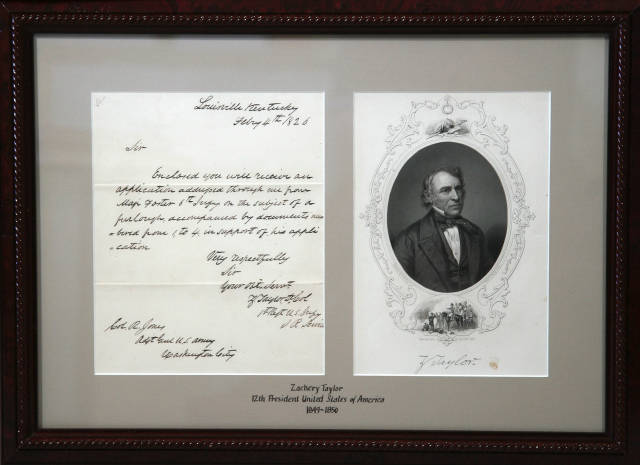 Louisville Kentucky
Feby 4th 1826
Sir
Enclosed you will receive an
application addressed through me from
Maj. Foster 6th Infy on the subject of a
furlough, accompanied by documents num
-bered from 1 to 4. in support of his appli
-cation
Very respectfully
Sir
Your Obt Servt
Z Taylor Lt Col
1st Regt U.S. Infy
Col. R. Jones
Adjt Genl U.S. army
Washington City
Z Taylor
Zachery Taylor
12th President United States of America
1849-1850